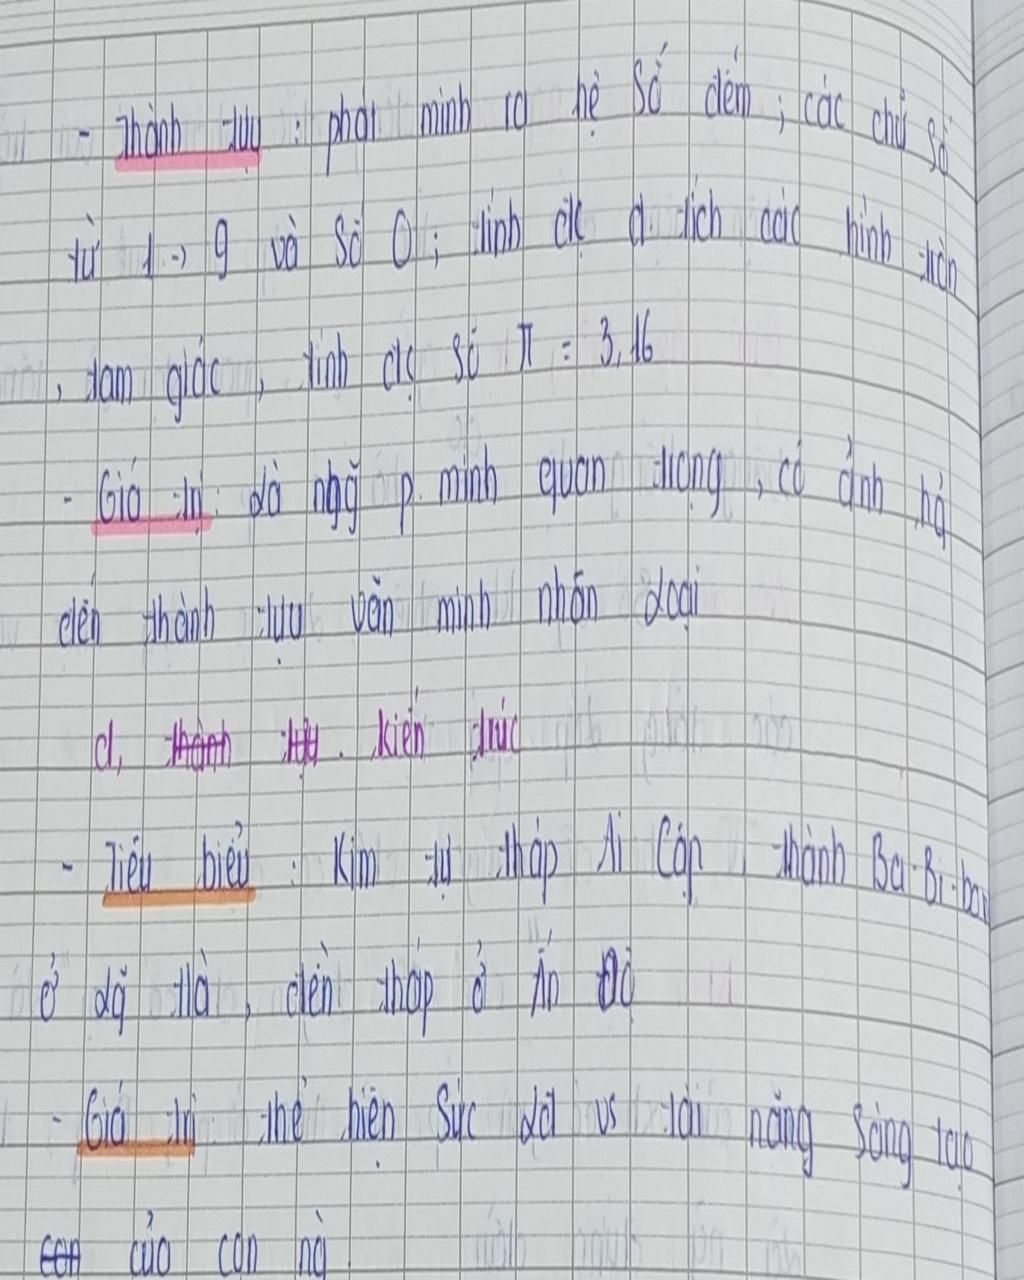 - Thành tựu : phát minh ra hệ số đếm ; các chữ số
từ 1 -> 9 và số 0 ; tính đc d. tích các hình tròn
, tam giác , tính đc số π = 3,16
- Giá trị : là ngỹ p. minh quan trọng , có ảnh hả
đến thành tựu văn minh nhân loại
d, thành tựu . kiến trúc
- Tiêu biểu : Kim tự tháp Ai Cập , thành Ba-Bi-bon
ở lg̃ Hà , đền tháp ở Ấn Độ
- Giá trị : thể hiện sức lđ vs tài năng sáng tạo
con của con ng̀